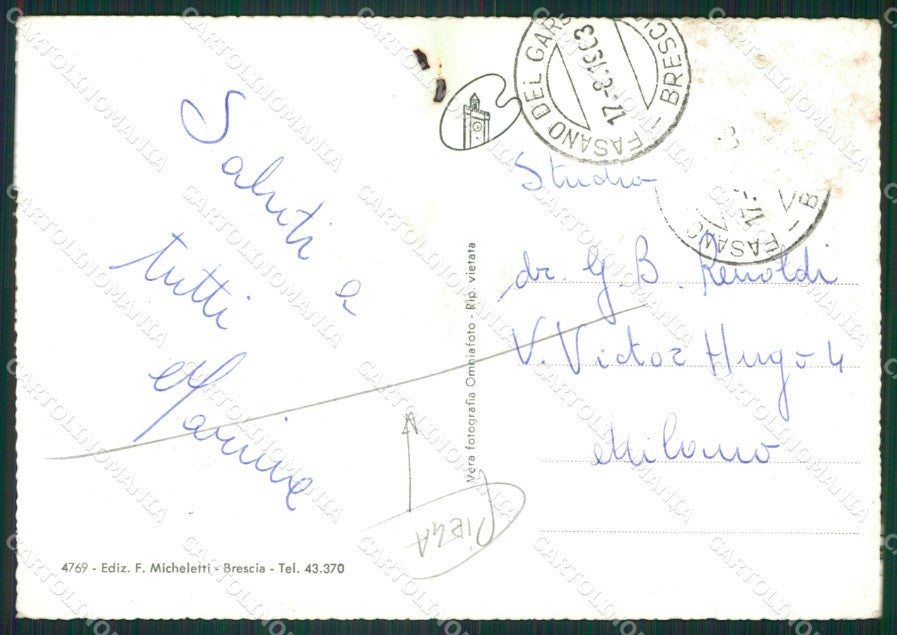 Saluti a
tutti
Marina
FASANO DEL GARDA - BRESCIA
17.-8.1963
FASANO
17.-
Studio
dr. G. B. Renoldi
V. Victor Hugo 4
Milano
Vera fotografia Omniafoto - Rip. vietata
PIEGA
4769 - Ediz. F. Micheletti - Brescia - Tel. 43.370
CARTOLINOMANIA